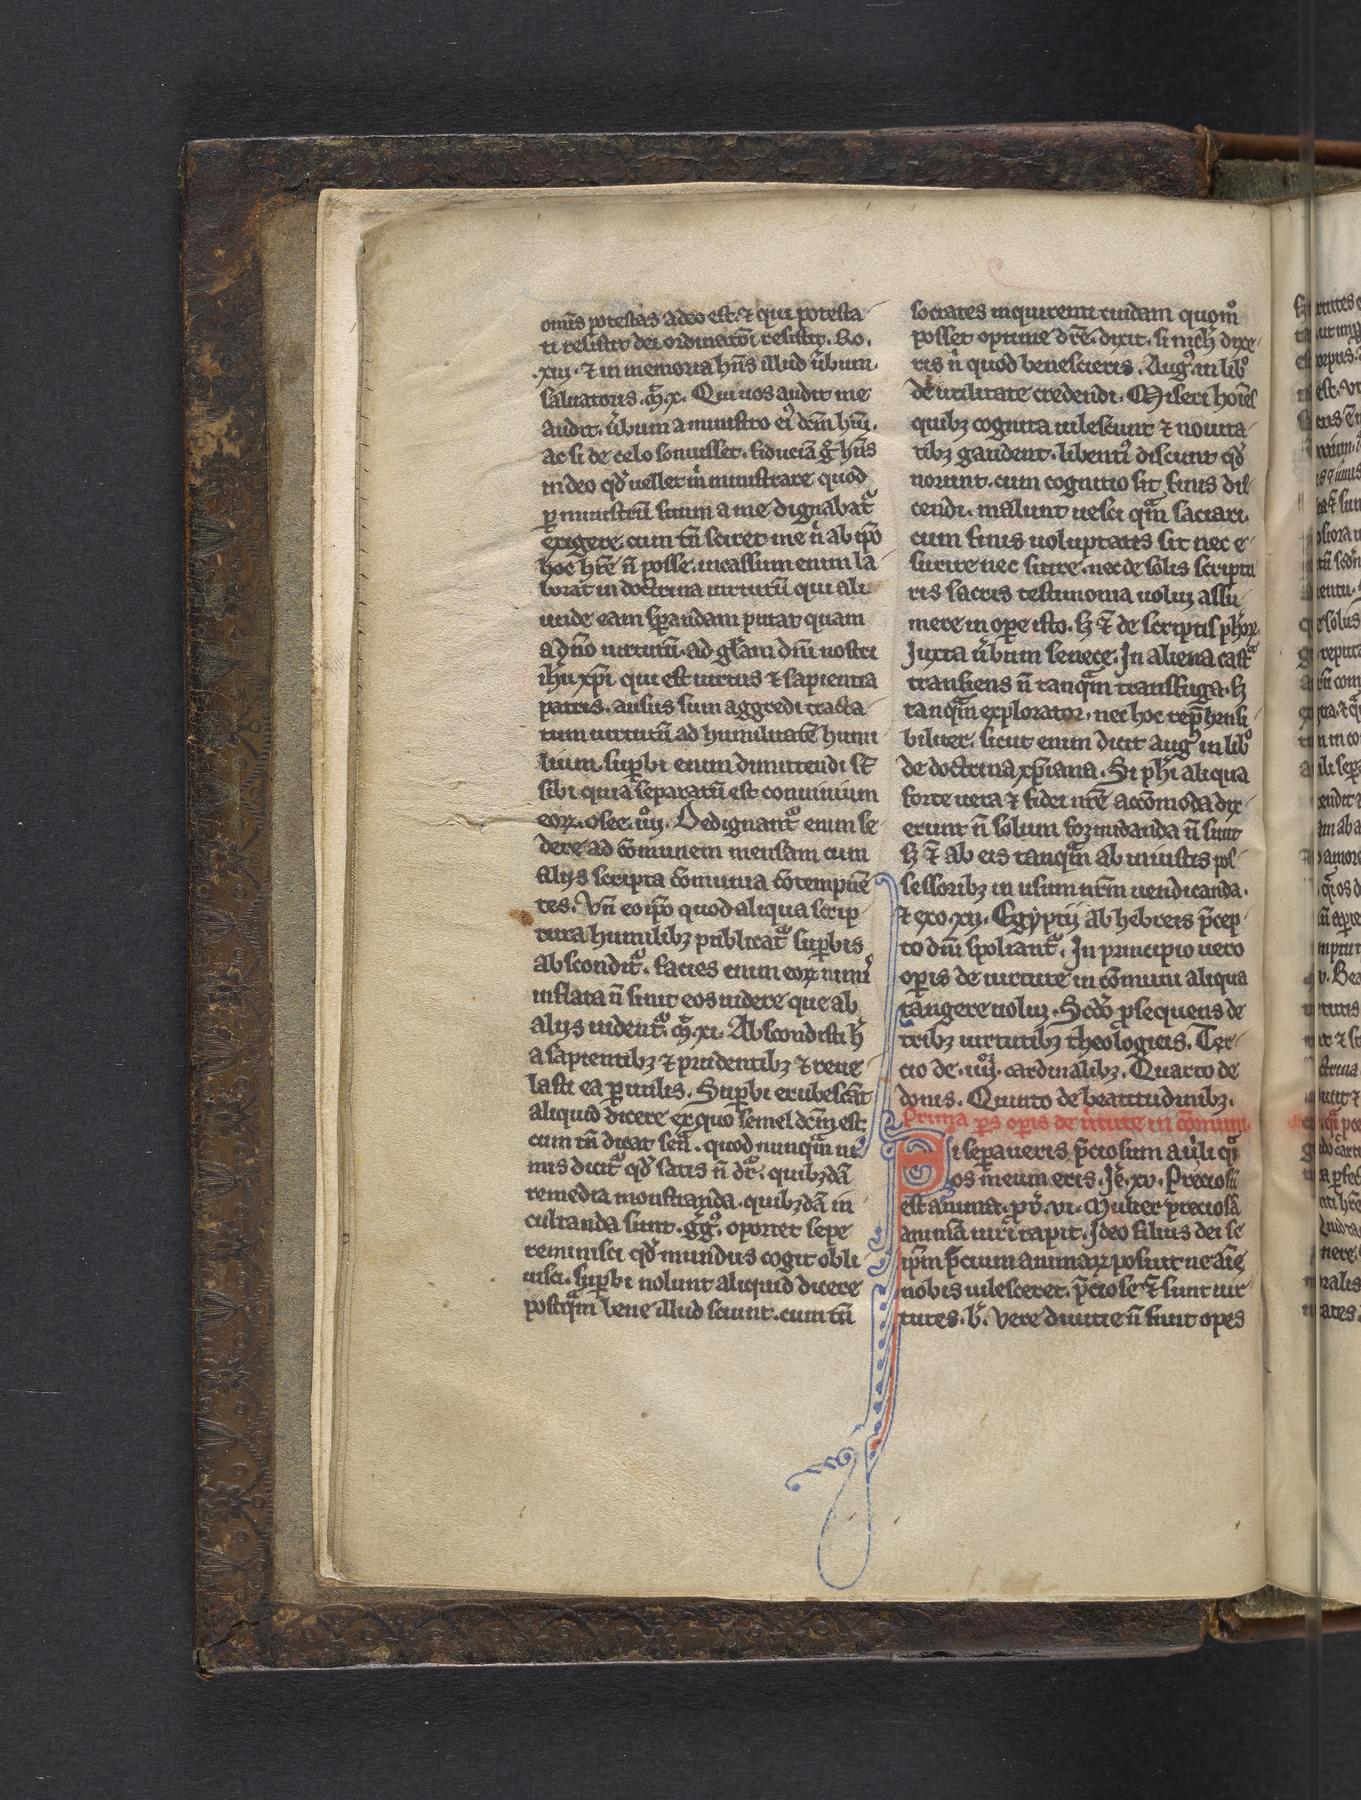 omīs potestas a deo est. ⁊ qui potesta
ti resistit dei ordinatōi resistit. Ro.
.xiij. ⁊ in memoria hn̄s illud u̓bum
saluatoris. Qui uos audit me
audit. u̓bum a ministro ei dc̄m
ac si de celo sonuisset. fiduciā g̊ hn̄s
in deo qd̓ uellet m̓ ministrare quod
ꝑ ministrū suum a me dignabat᷑
exigere. cum tn̄ sciret me n̄ ab ip̄o
hoc hr̄e n̄ posse. incassum enim la
borat in doctrina uirtutū qui ali
unde eam sꝑandam putat quam
a dn̄o uirtutū. ad gl̄am dn̄i nostri
ih̄u xp̄i qui est uirtus ⁊ sapientia
patris. ausus sum aggredi tracta
tum uirtutū ad humilitatē humi
lium. suꝑbi enim dimittendi st̄
sibi quia separatū est conuiuium
eoꝝ. osee. iiij. Dedignant᷑ enim se
dere ad cōmunem mensam cum
alijs scripta cōmunia cōtempnē
tes. Vn̄ eo ip̄o quod aliqua scrip
tura humilibꝫ publicat᷑ suꝑbis
abscondit᷑. facies enim eoꝝ nimi
inflata n̄ sinit eos uidere que ab
alijs uident᷑. xi. Abscondisti h̓
a sapientibꝫ ⁊ prudentibꝫ ⁊ reue
lasti ea ꝑuulis. Suꝑbi erubescūt
aliquid dicere ex quo semel dc̄m est
cum tn̄ dicat sen̄. quod nunqᷓm ni
mis dicit᷑ qd̓ satis n̄ dr̄. quibꝫdā
remedia monstranda. quibꝫdā in
culcanda sunt. oportet sepe
reminisci qd̓ mundus cogit obli
uisci. suꝑbi nolunt aliquid dicere
postqᷓm bene illud sciunt. cum tn̄
socrates inquirenti cuidam quom̊
posset optime dr̄e. dixit. si nich̓ dixe
ris n̓ quod bene scieris. Aug᷒. in lib̊
de utilitate credendi. Miseri hoīes
quibꝫ cognita uilescunt ⁊ nouita
tibꝫ gaudent. libenti᷒ discunt qd̓
norunt. cum cognitio sit finis dis
cendi. malunt uesci qᷓm saciari.
cum finis uoluptatis sit nec e
surire nec sitire. nec de solis scriptu
ris sacris testimonia uolui assu
mere in oꝑe isto. sꝫ ⁊ de scriptis ph̓oꝝ
Juxta u̓bum senece. In aliena cast᷑
transiens n̄ tanqᷓm transfuga. sꝫ
tanqᷓm explorator. nec hoc rep̄hensi
biliter. sicut enim dicit aug᷒ in lib̊
de doctrina xp̄iana. Si ph̓i aliqua
forte uera ⁊ fidei nr̄e accōmoda dix
erunt n̄ solum formidanda n̄ sunt
sꝫ ⁊ ab eis tanqᷓm ab iniustis pos
sessoribꝫ in usum nrm̄ uendicanda.
⁊ exo. xij. Egyptij ab hebreis p̄cep
to dn̄i spoliant᷑. In principio uero
oꝑis de uirtute in cōmuni aliqua
tangere uolui. Scd̊o ꝓsequens de
tribꝫ uirtutibꝫ theologicis. Ter
cio de .iiij. cardinalibꝫ. Quarto de
donis. Quinto de beatitudinibꝫ.
Prima ꝑs oꝑis de u̓tute in cōmuni
Si separaueris p̄ciosum a uili qᷓsi
os meum eris. Je. xv. Preciosū
est anima. ꝓu̓. vi. Mulier preciosā
animā uiri rapit. Ideo filius dei se
ip̄m p̄cium animaꝝ posuit ne aīe
nobis uilesceret. p̄ciose ⁊ sunt uir
tutes. b̓. Vere diuitie n̄ sunt opes